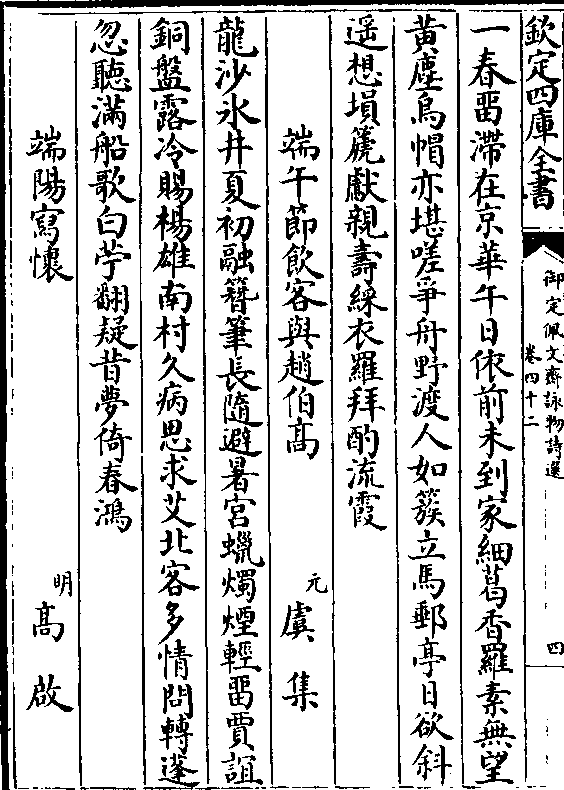 欽定四庫全書
御定佩文齋詠物詩選
卷四十二
四
一春畱滯在京華午日依前未到家細葛香羅素無望
黃塵烏帽亦堪嗟爭舟野渡人如簇立馬郵亭日欲斜
遥想塤篪獻親壽綵衣羅拜酌流霞
端午節飲客與趙伯髙
元
虞集
龍沙氷井夏初融簪筆長隨避暑宮蠟燭煙輕畱賈誼
銅盤露冷賜楊雄南村久病思求艾北客多情問轉蓬
忽聽滿船歌白苧翻疑昔夢倚春鴻
端陽寫懷
明
髙啟